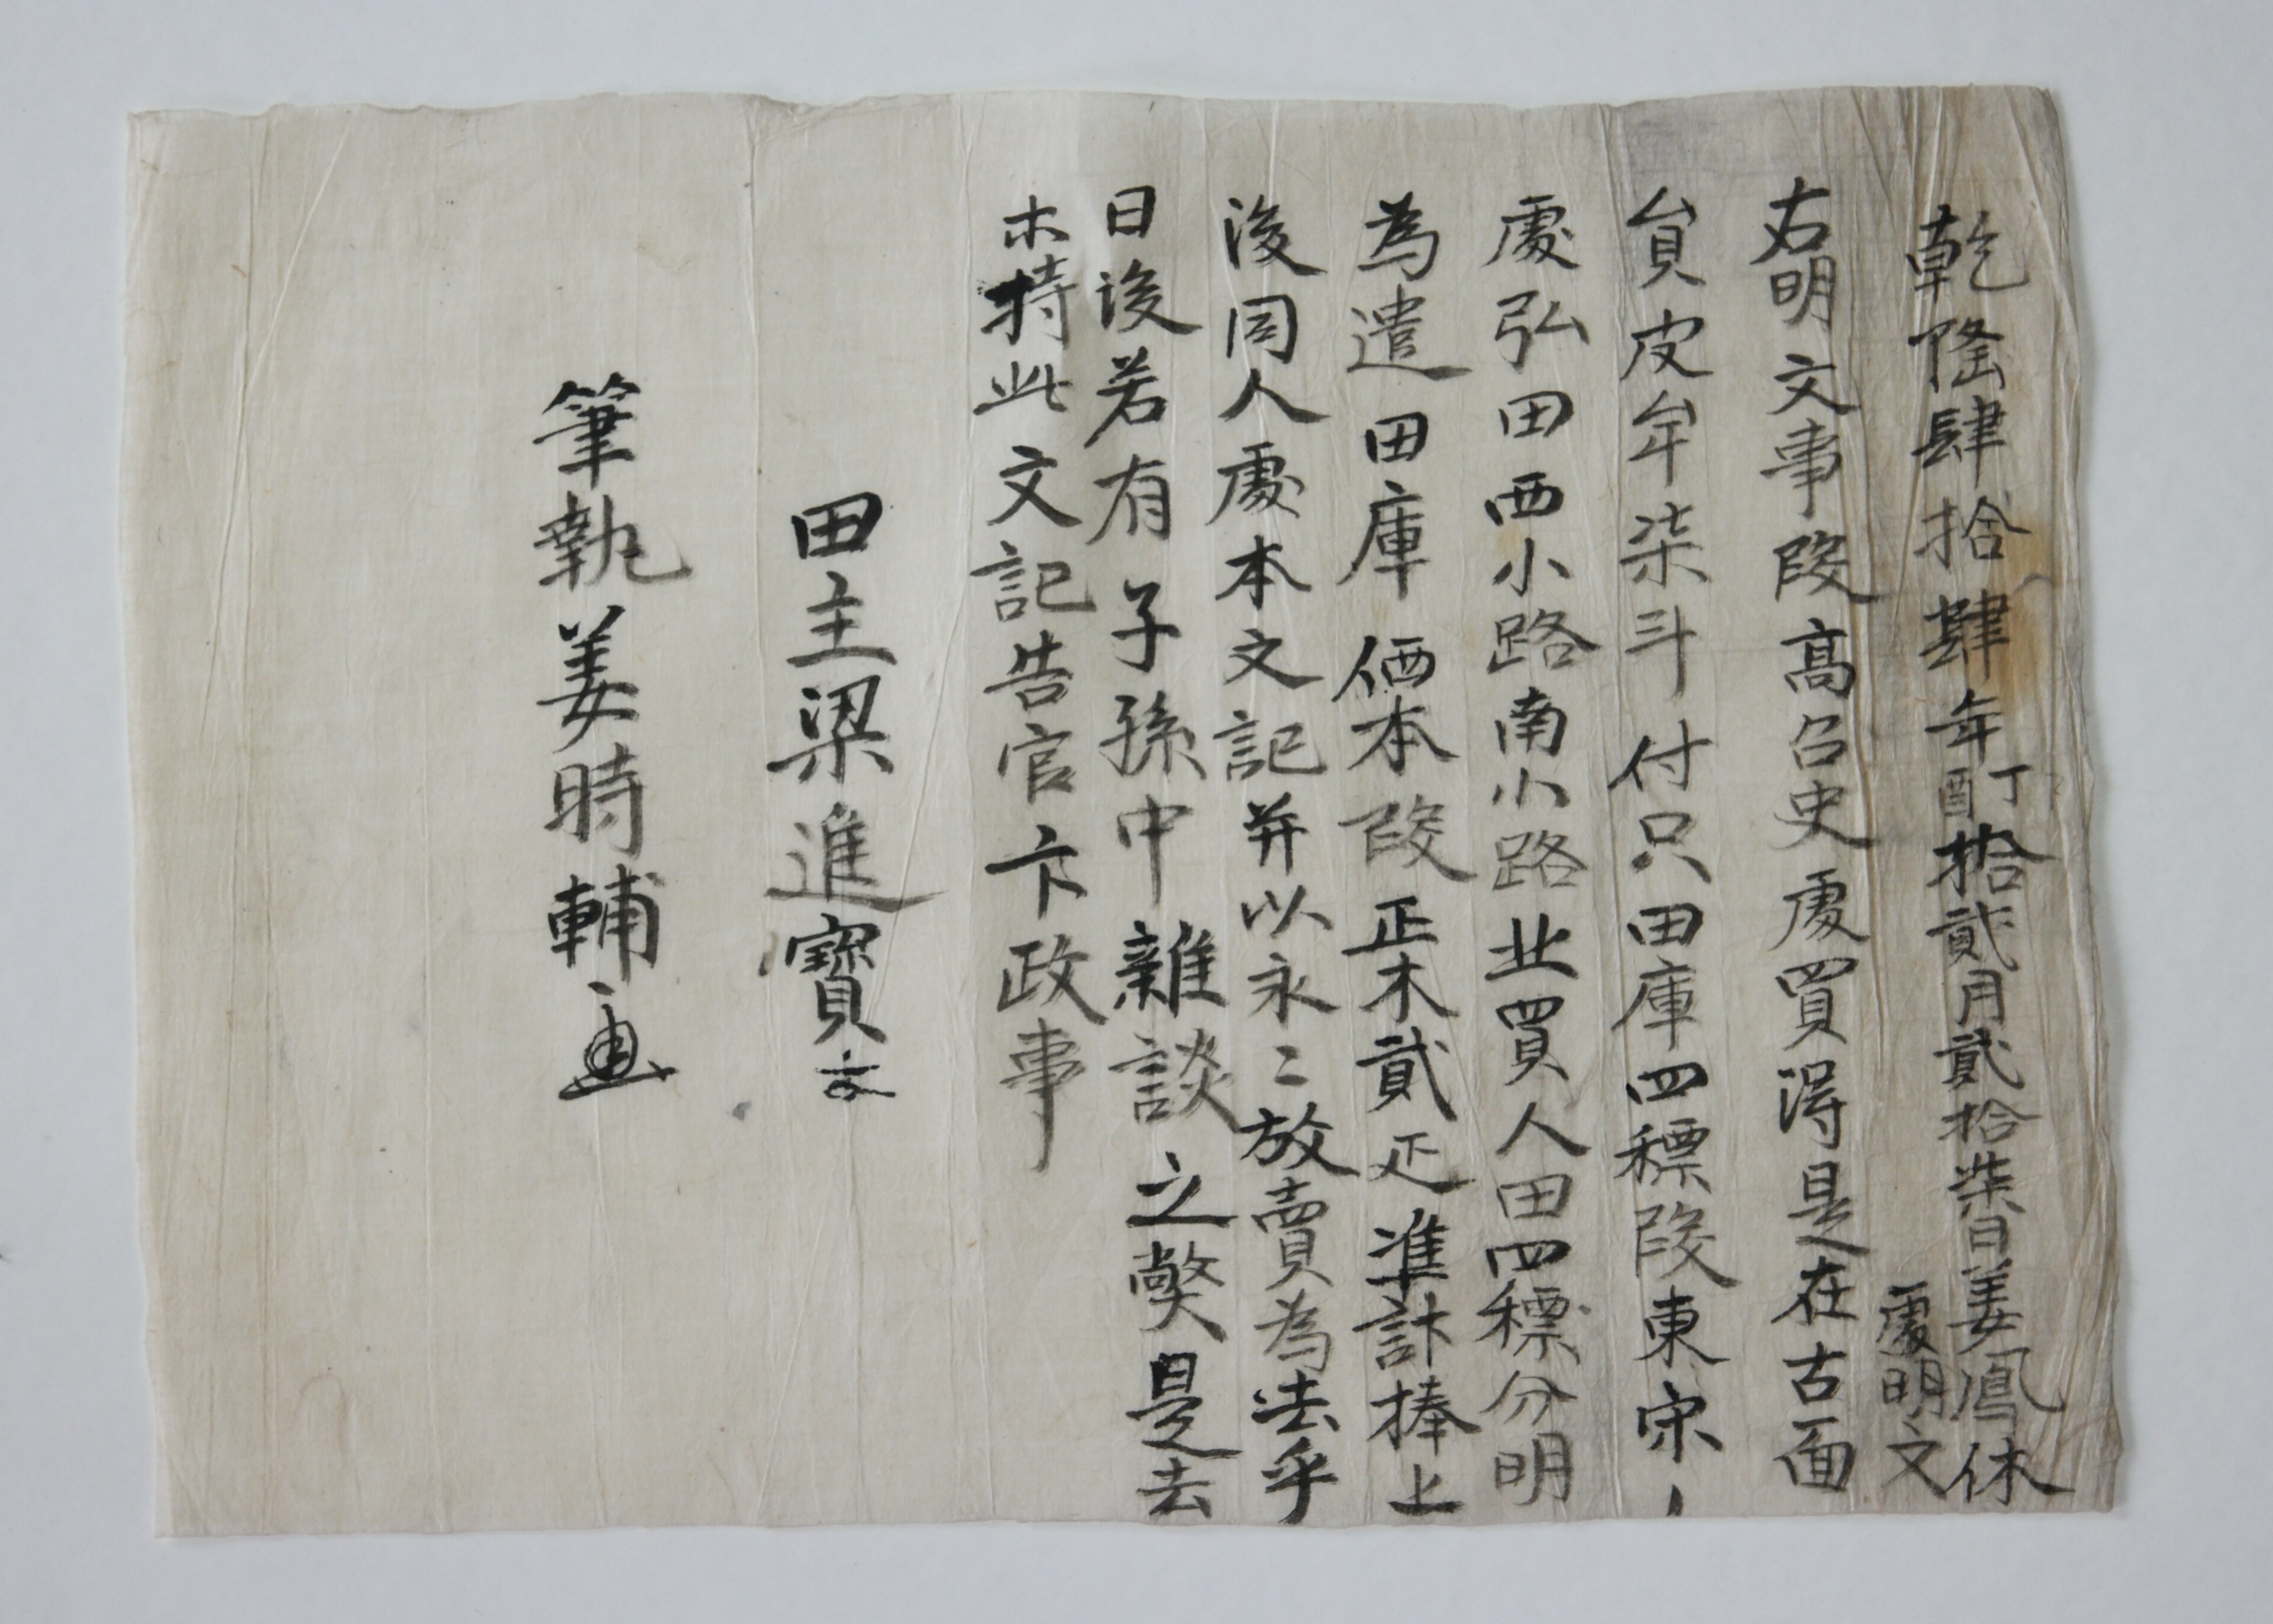 乾隆肆拾肆年丁酉拾貳月貳拾柒日姜鳳休
處明文
右明文事段高召史處買得是在古面
員皮牟柒斗付只田庫四標段東宋丶
處弘田西小路南小路北買人田四標分明
為遣田庫価本段正木貳疋準計捧上
後同人處本文記并以永〻放賣為去乎
日後若有子孫中雜談之獘是去
木持此文記告官卞政事
田主梁進寶
筆執姜時輔